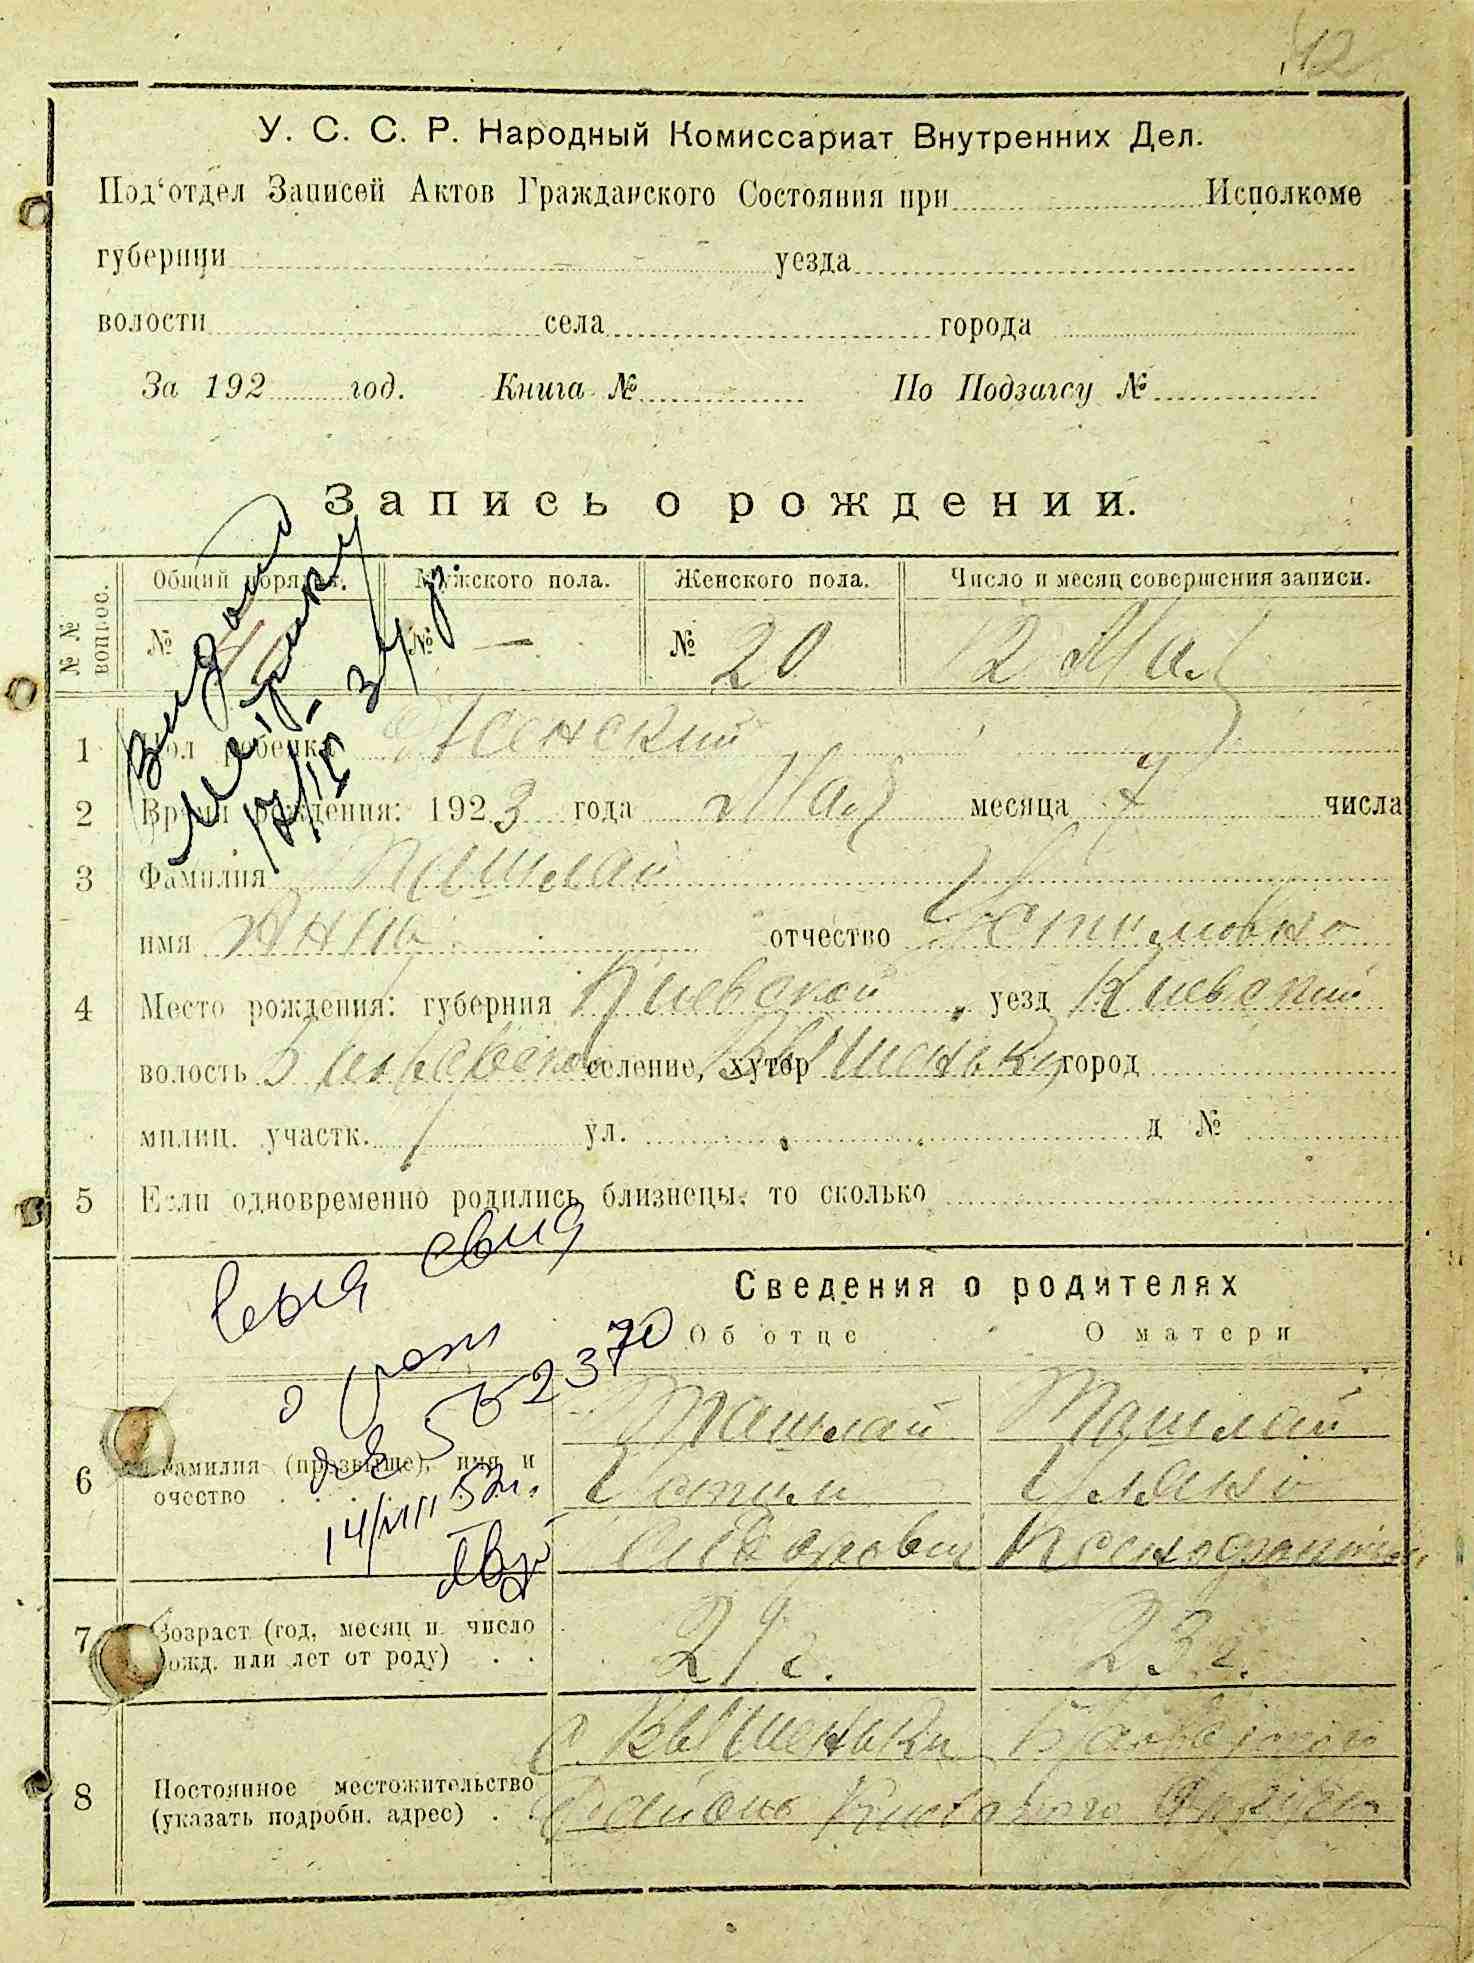 12
У. С. С. Р. Народный Комиссариат Внутренних Дел.
Под‘отдел Записей Актов Гражданского Состояния при Исполкоме
губернии уезда
волости села города
За 192 год. Книга № По Подзагсу №
Запись о рождении.
№ № вопрос. Общий порядк. Мужского пола. Женского пола. Число и месяц совершения записи.
№ № — № 20 12 Мая
1 Пол ребенка Женский
2 Время рождения: 1923 года Мая месяца 7 числа
3 Фамилия Ташлай
имя Анна отчество Устимовна
4 Место рождения: губерния Киевской уезд Киевский
волость селение, хутор Вышеньки город
милиц. участк. ул. д №
5 Если одновременно родились близнецы, то сколько
видано
метрику
17/IX - 34 р.
Сведения о родителях
Об отце О матери
6 Фамилия (прозвище), имя и очество
Ташлай Ташлай
Устим Уляна
7 Возраст (год, месяц и число рожд. или лет от роду) 29 г. 23 г.
8 Постоянное местожительство (указать подробн. адрес)
с. Вышеньки
района Киевского
выд свид
о рожд
14/VIII 52г.